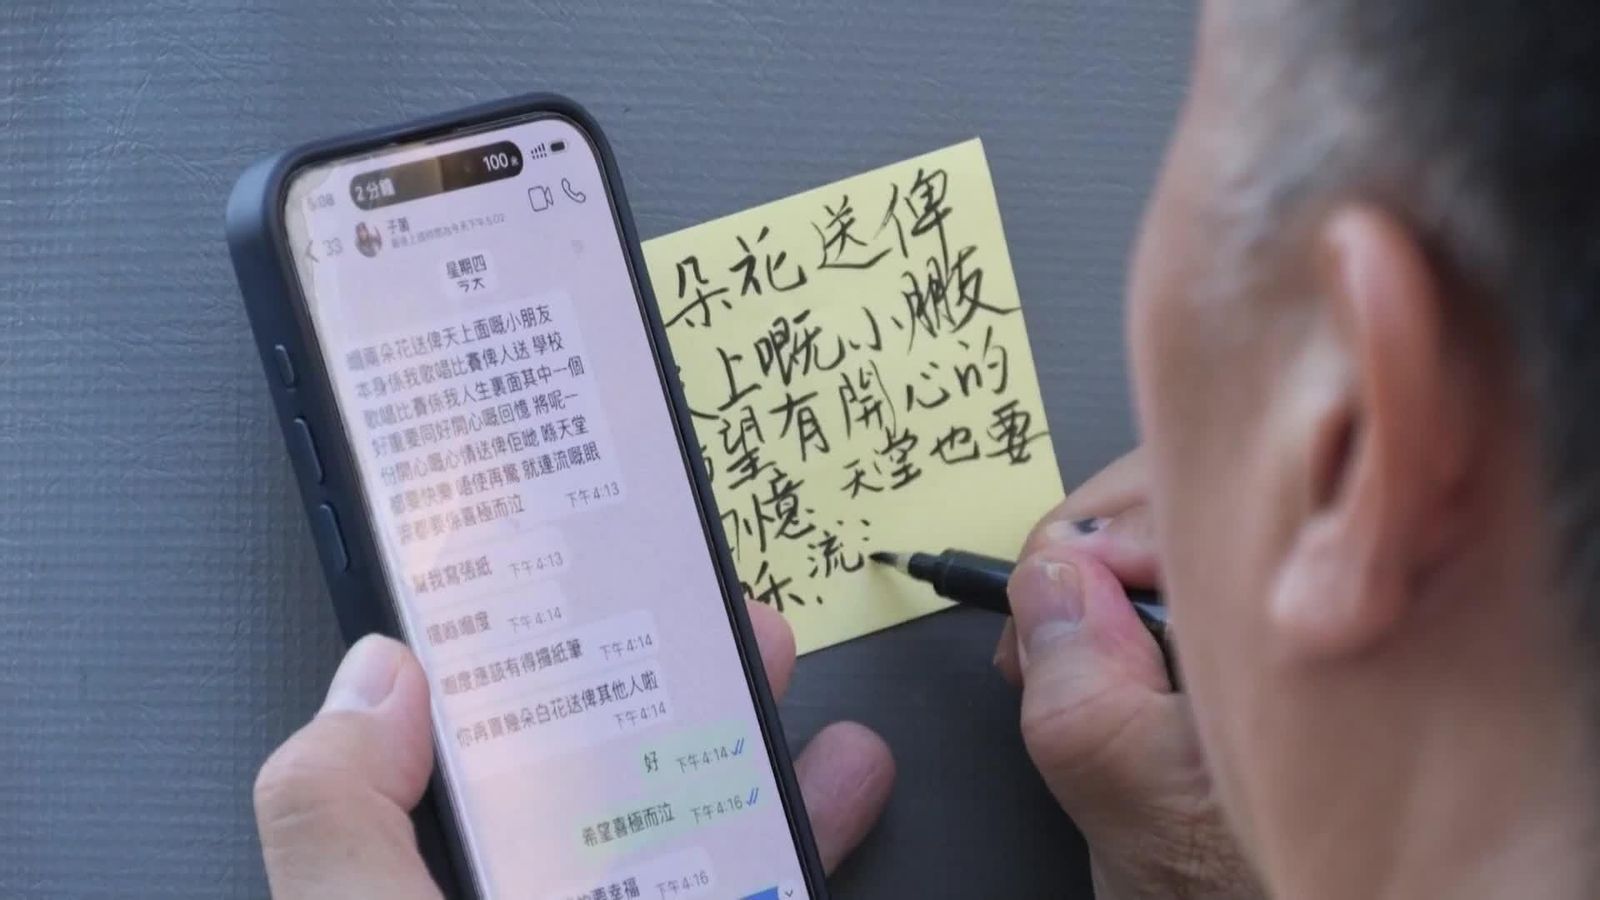 5:08
2分鐘
100
33
子茵
最後上線時間為今天下午5:02
星期四
今天
嗰兩朵花送俾天上面嘅小朋友
本身係我歌唱比賽俾人送 學校
歌唱比賽係我人生裏面其中一個
好重要同好開心嘅回憶 將呢一
份開心嘅心情送俾佢哋 喺天堂
都要快樂 唔使再驚 就連流嘅眼
淚都要係喜極而泣
下午4:13
幫我寫張紙
下午4:13
擺喺嗰度
下午4:14
嗰度應該有得攞紙筆
下午4:14
你再買幾朵白花送俾其他人啦
下午4:14
好
下午4:14
希望喜極而泣
下午4:16
要幸福
下午4:16
朵花送俾
上嘅小朋友
望有開心的
憶 天堂也要
流